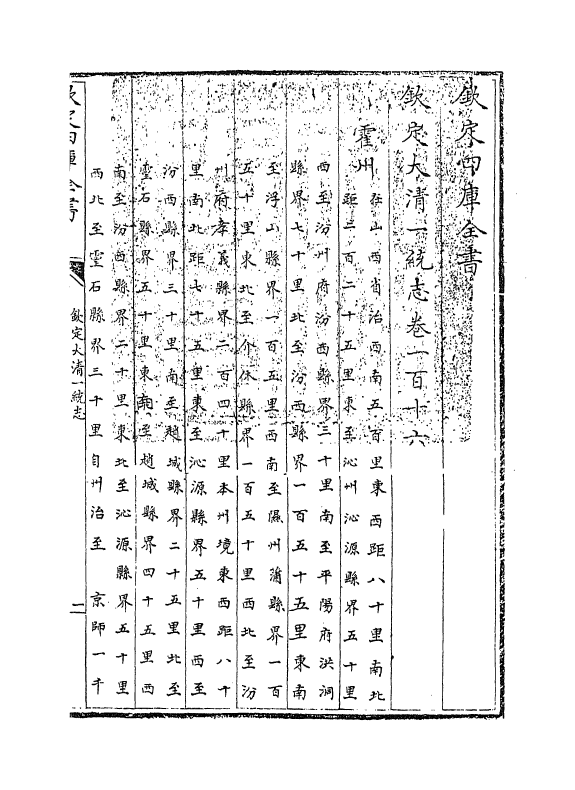 欽定四庫全書
欽定大清一統志卷一百十六
霍州
在山西省治西南五百里東西距八十里南北
距二百二十五里東至沁州沁源縣界五十里
西至汾州府汾西縣界三十里南至平陽府洪洞
縣界七十里北至汾西縣界一百五十五里東南
至浮山縣界一百五里西南至隰州蒲縣界一百
五十里東北至介休縣界一百五十里西北至汾
州府孝義縣界二百四十里本州境東西距八十
里南北距七十五里東至沁源縣界五十里西至
汾西縣界三十里南至趙城縣界二十五里北至
靈石縣界五十里東南至趙城縣界四十五里西
南至汾西縣界二十里東北至沁源縣界五十里
西北至靈石縣界三十里自州治至 京師一千
欽定四庫全書 欽定大清一統志